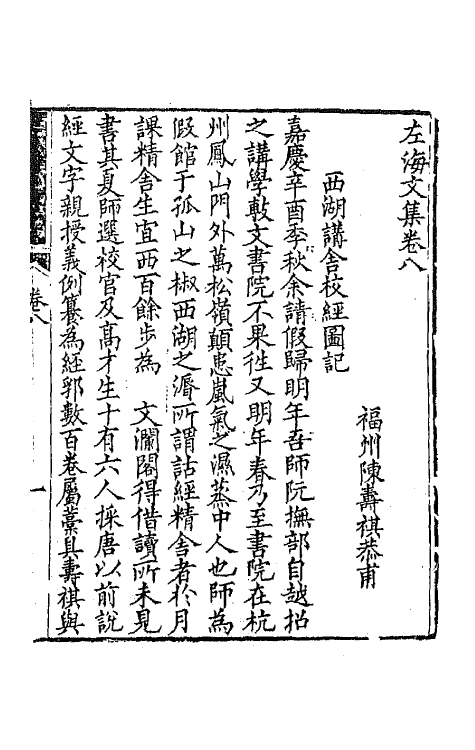 左海文集卷八
福州陳壽祺恭甫
西湖講舍校經圖記
嘉慶辛酉季秋余請假歸明年吾師阮撫部自越招
之講學敷文書院不果徃又明年春乃至書院在杭
州鳳山門外萬松嶺顛患嵐氣之濕蒸中人也師為
假館于孤山之椒西湖之漘所謂詁經精舍者於月
課精舍生宜西百餘步為 文瀾閣得借讀所未見
書其夏師選校官及高才生十有六人採唐以前說
經文字親授義例纂為經郛數百卷屬藁具壽祺與
卷八
一